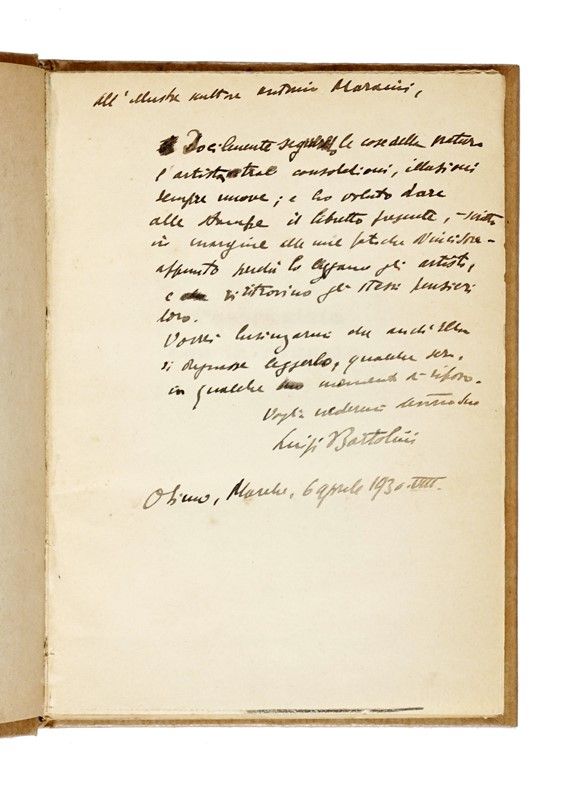 All'illustre scultore Antonio Maraini,
Docilmente seguendo le cose della natura
l'artista trae consolazioni, illusioni
sempre nuove; e ho voluto dare
alle stampe il libretto presente, - scritto
in margine alle mie fatiche d'incisore -
appunto perchè lo leggano gli artisti,
e vi ritrovino gli stessi pensieri
loro.
Vorrei lusingarmi che anch'Ella
si degnasse leggerlo, qualche sera,
in qualche momento di riposo.
Voglia credermi devmo suo
Luigi Bartolini
Osimo, Marche, 6 aprile 1930. VIII.